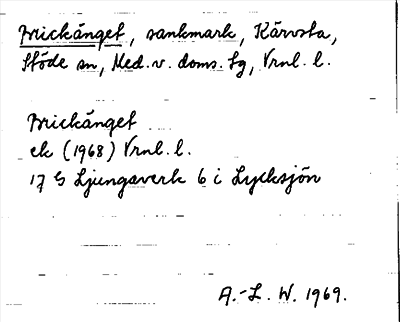 Brickänget, sankmark, Kärvsta,
Stöde sn, Med. v. doms. tg, Vrnl. l.
Brickänget
ek (1968) Vrnl. l.
17 G Ljungaverk 6 i Lycksjön
A.-L. W. 1969.